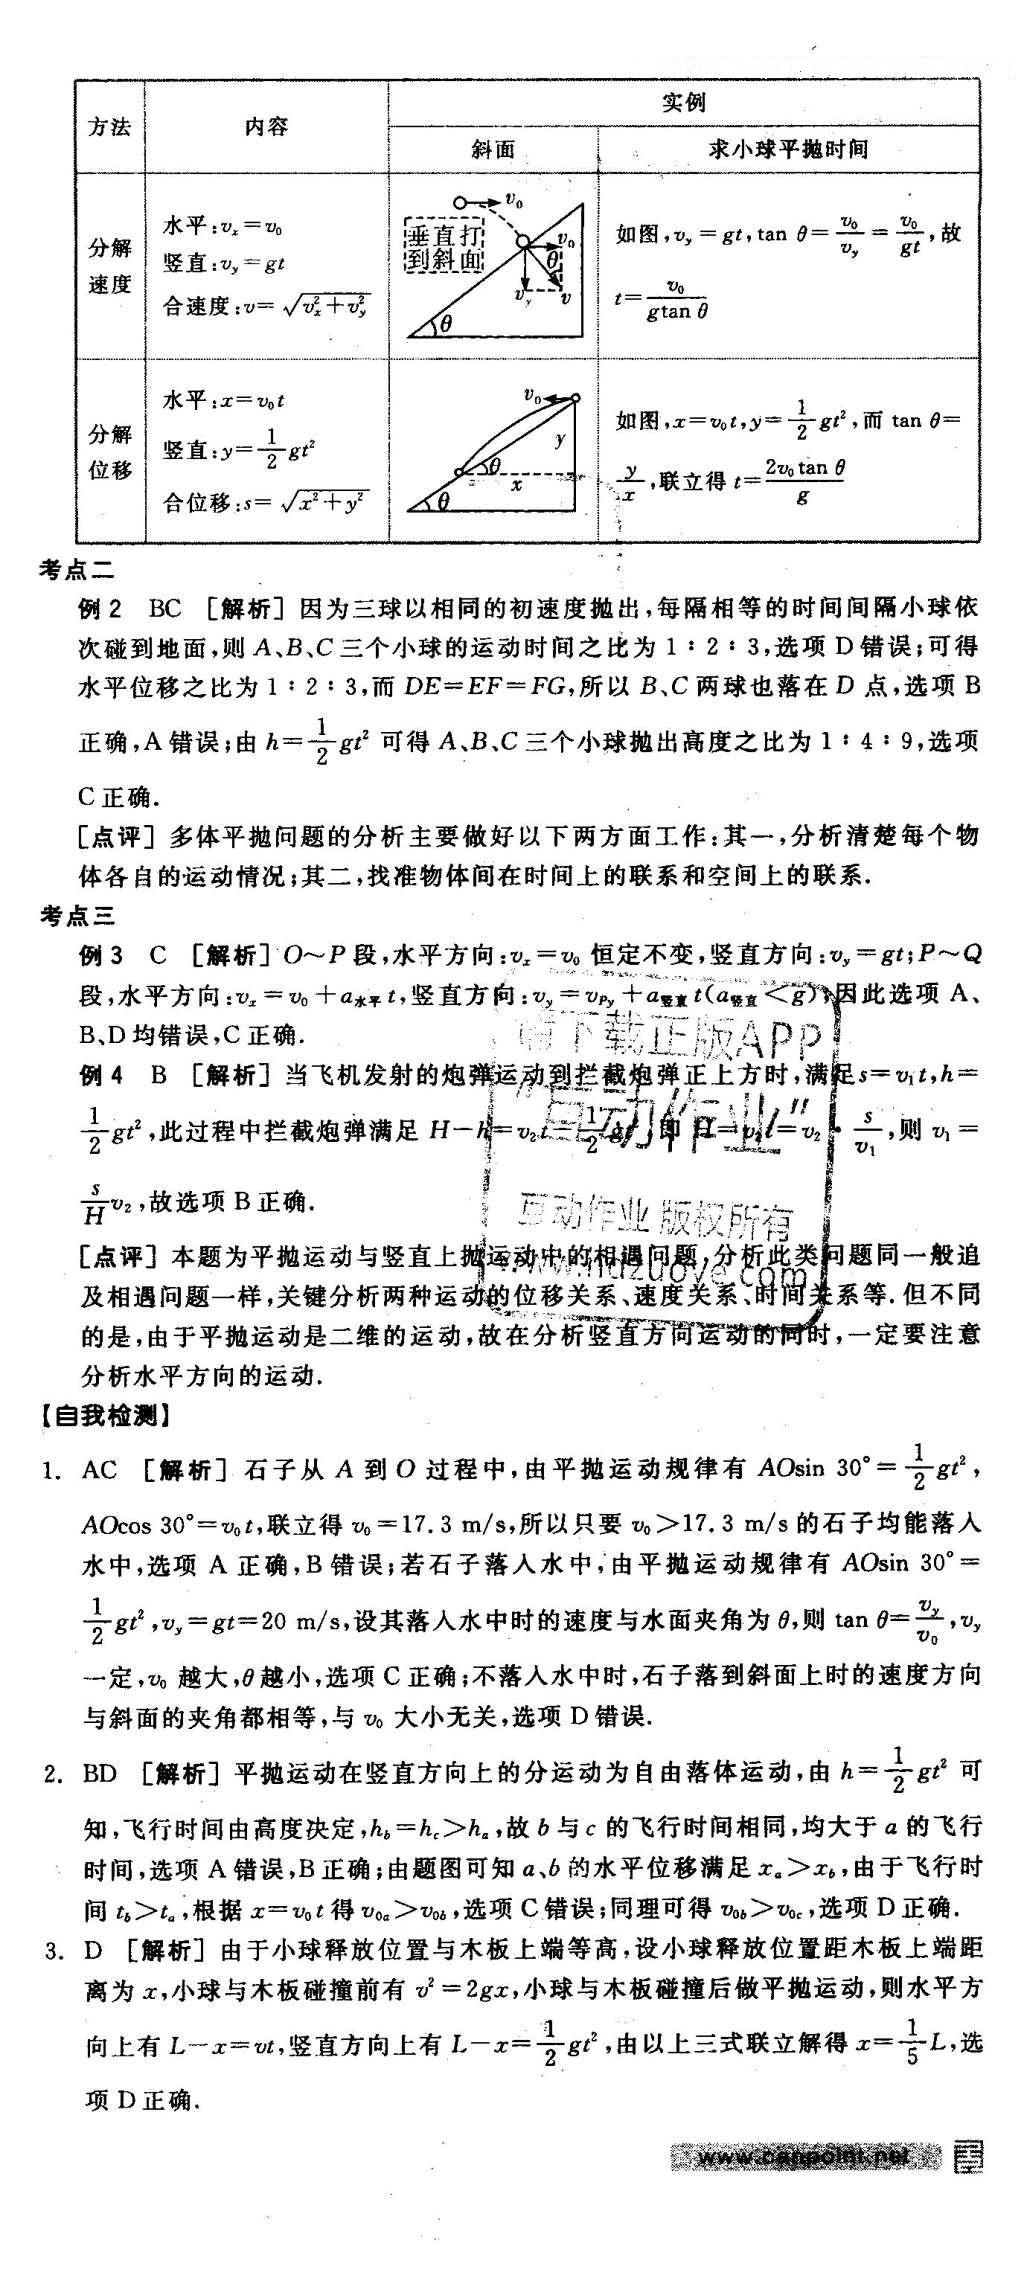 方法 内容 实例
斜面 求小球平抛时间
分解速度
水平:vₓ=v₀
竖直:v_y=gt
合速度:v=√(vₓ²+v_y²)
垂直打
到斜面
v₀
v₀
θ
v_y
v
θ
如图,v_y=gt,tan θ=v₀/v_y=v₀/gt,故
t=v₀/(gtan θ)
分解位移
水平:x=v₀t
竖直:y=1/2gt²
合位移:s=√(x²+y²)
v₀
y
θ
x
θ
如图,x=v₀t,y=1/2gt²,而 tan θ=
y/x,联立得 t=2v₀tan θ/g
考点二
例2 BC [解析] 因为三球以相同的初速度抛出,每隔相等的时间间隔小球依
次碰到地面,则 A、B、C 三个小球的运动时间之比为 1∶2∶3,选项 D 错误;可得
水平位移之比为 1∶2∶3,而 DE=EF=FG,所以 B、C 两球也落在 D 点,选项 B
正确,A 错误;由 h=1/2gt² 可得 A、B、C 三个小球抛出高度之比为 1∶4∶9,选项
C 正确.
[点评] 多体平抛问题的分析主要做好以下两方面工作:其一,分析清楚每个物
体各自的运动情况;其二,找准物体间在时间上的联系和空间上的联系.
考点三
例3 C [解析] O~P 段,水平方向:vₓ=v₀ 恒定不变,竖直方向:v_y=gt;P~Q
段,水平方向:vₓ=v₀+a水平t,竖直方向:v_y=v_Py+a竖直t(a竖直<g),因此选项 A、
B、D 均错误,C 正确.
请下载正版APP
例4 B [解析] 当飞机发射的炮弹运动到拦截炮弹正上方时,满足 s=v₁t,h=
"互动作业"
1/2gt²,此过程中拦截炮弹满足 H-h=v₂t-1/2gt²,即 H=v₂t=v₂·s/v₁,则 v₁=
s/H v₂,故选项 B 正确.
互动作业 版权所有
[点评] 本题为平抛运动与竖直上抛运动中的相遇问题,分析此类问题同一般追
及相遇问题一样,关键分析两种运动的位移关系、速度关系、时间关系等.但不同
的是,由于平抛运动是二维的运动,故在分析竖直方向运动的同时,一定要注意
分析水平方向的运动.
【自我检测】
1. AC [解析] 石子从 A 到 O 过程中,由平抛运动规律有 AOsin 30°=1/2gt²,
AOcos 30°=v₀t,联立得 v₀=17.3 m/s,所以只要 v₀>17.3 m/s 的石子均能落入
水中,选项 A 正确,B 错误;若石子落入水中,由平抛运动规律有 AOsin 30°=
1/2gt²,v_y=gt=20 m/s,设其落入水中时的速度与水面夹角为 θ,则 tan θ=v_y/v₀,v_y
一定,v₀ 越大,θ 越小,选项 C 正确;不落入水中时,石子落到斜面上时的速度方向
与斜面的夹角都相等,与 v₀ 大小无关,选项 D 错误.
2. BD [解析] 平抛运动在竖直方向上的分运动为自由落体运动,由 h=1/2gt² 可
知,飞行时间由高度决定,h_b=h_c>h_a,故 b 与 c 的飞行时间相同,均大于 a 的飞行
时间,选项 A 错误,B 正确;由题图可知 a、b 的水平位移满足 x_a>x_b,由于飞行时
间 t_b>t_a,根据 x=v₀t 得 v₀a>v₀b,选项 C 错误;同理可得 v₀b>v₀c,选项 D 正确.
3. D [解析] 由于小球释放位置与木板上端等高,设小球释放位置距木板上端距
离为 x,小球与木板碰撞前有 v²=2gx,小球与木板碰撞后做平抛运动,则水平方
向上有 L-x=vt,竖直方向上有 L-x=1/2gt²,由以上三式联立解得 x=1/5L,选
项 D 正确.
www.canpoint.net